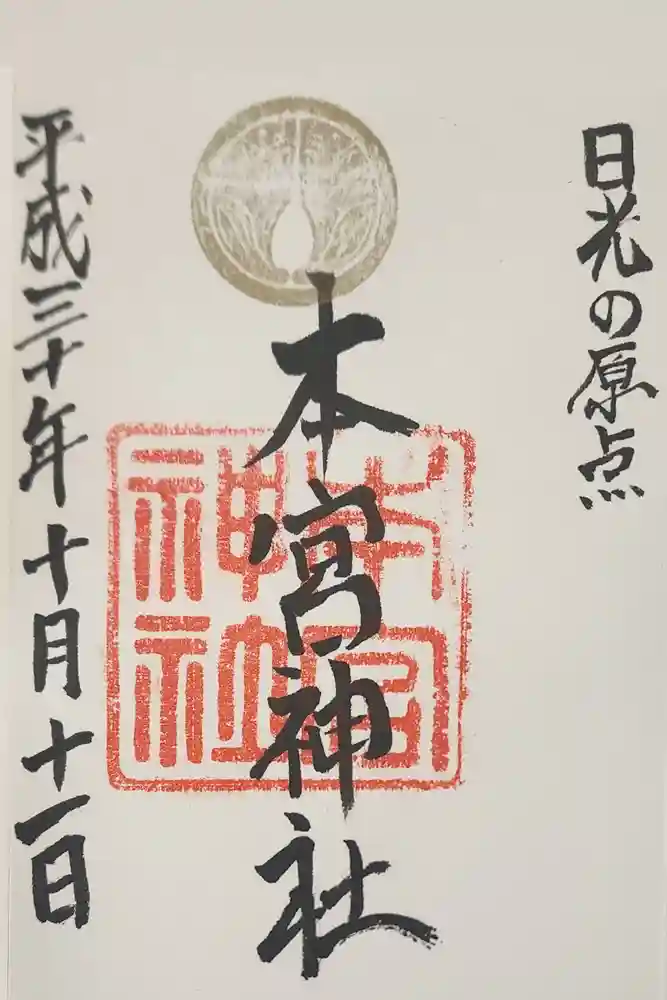 日光の原点
本宮神社
本宮
神社
平成三十年十月十一日